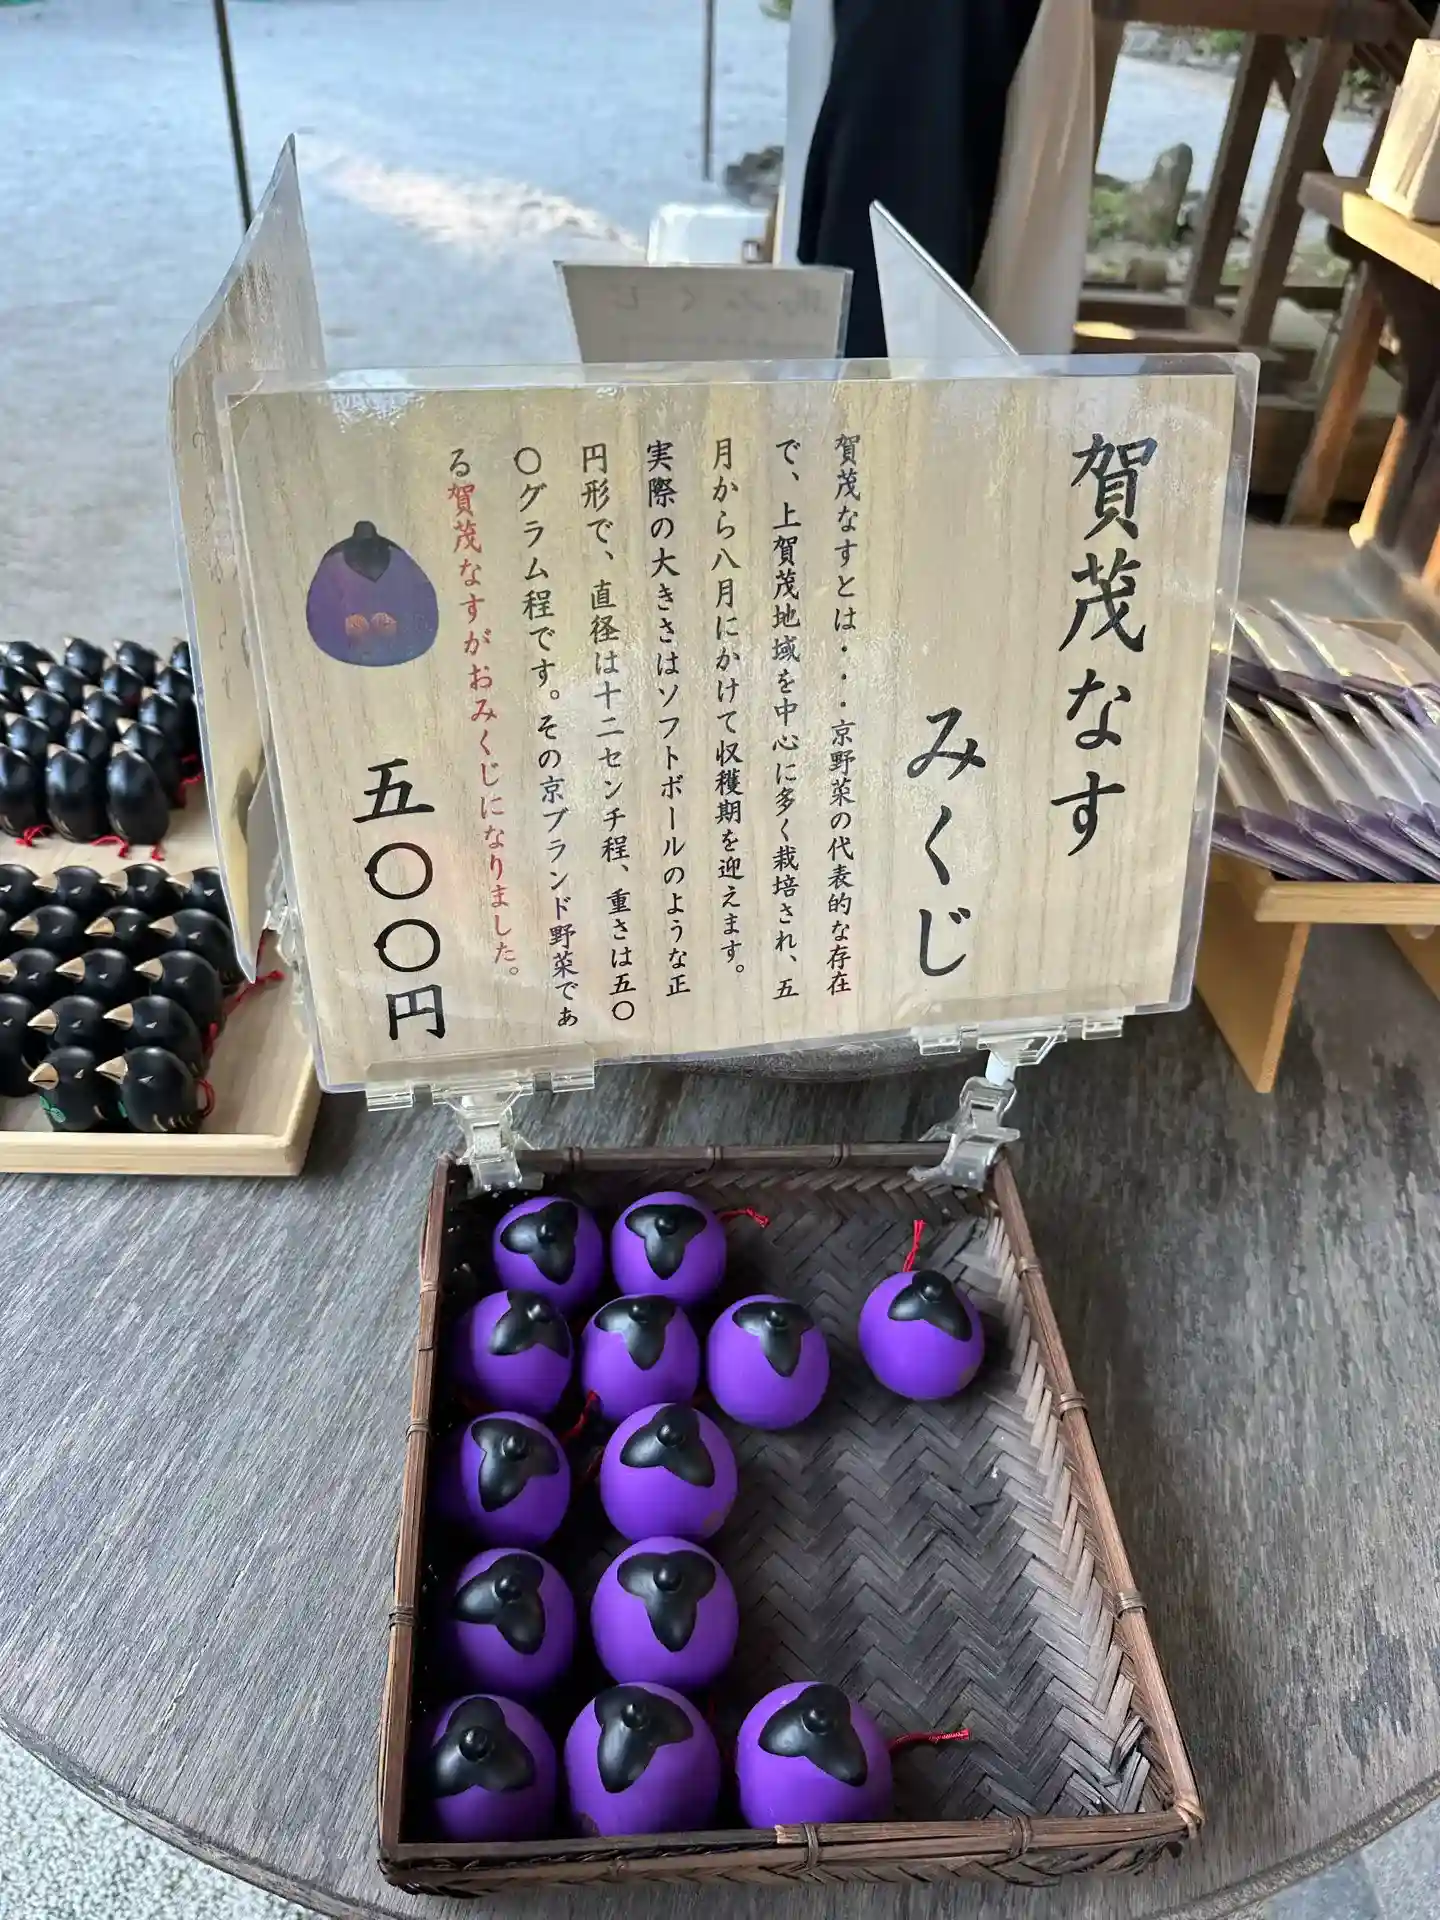 賀茂なす
みくじ
賀茂なすとは・・・京野菜の代表的な存在
で、上賀茂地域を中心に多く栽培され、五
月から八月にかけて収穫期を迎えます。
実際の大きさはソフトボールのような正
円形で、直径は十二センチ程、重さは五〇
〇グラム程です。その京ブランド野菜であ
る賀茂なすがおみくじになりました。
五〇〇円